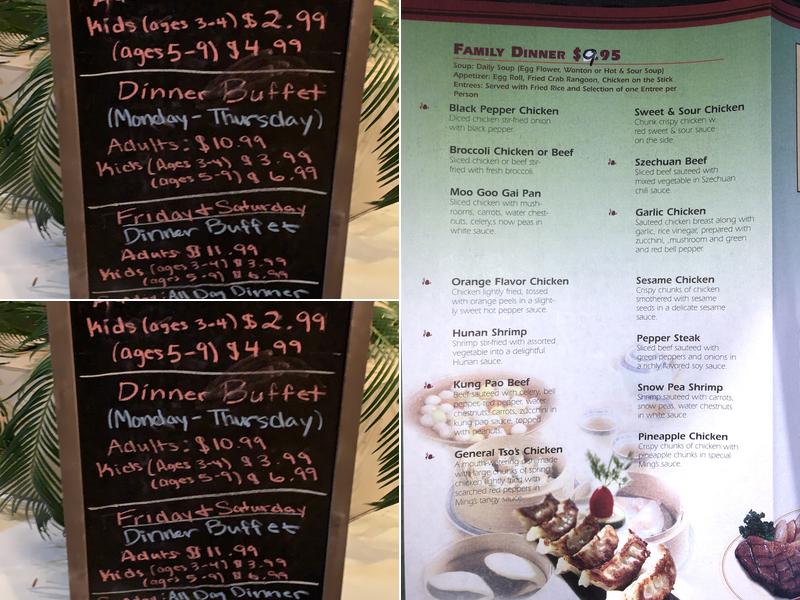 Kids (ages 3-4) $2.99
(ages 5-9) $4.99
Dinner Buffet
(Monday - Thursday)
Adults: $10.99
Kids (Ages 3-4) $3.99
(ages 5-9) $6.99
Friday & Saturday
Dinner Buffet
Adults $11.99
Kids (ages 3-4) $3.99
(ages 5-9) $6.99
All Day Dinner
Kids (ages 3-4) $2.99
(ages 5-9) $4.99
Dinner Buffet
(Monday - Thursday)
Adults: $10.99
Kids (Ages 3-4) $3.99
(ages 5-9) $6.99
Friday & Saturday
Dinner Buffet
Adults $11.99
Kids (ages 3-4) $3.99
(ages 5-9) $6.99
All Day Dinner
Family Dinner $9.95
Soup: Daily Soup (Egg Flower, Wonton or Hot & Sour Soup)
Appetizer: Egg Roll, Fried Crab Rangoon, Chicken on the Stick
Entrees: Served with Fried Rice and Selection of one Entree per
Person
Black Pepper Chicken
Diced chicken stir-fried onion
with black pepper.
Broccoli Chicken or Beef
Sliced chicken or beef stir-
fried with fresh broccoli.
Moo Goo Gai Pan
Sliced chicken with mush-
rooms, carrots, water chest-
nuts, celery,s now peas in
white sauce.
Orange Flavor Chicken
Chicken lightly fried, tossed
with orange peels in a slight-
ly sweet hot pepper sauce.
Hunan Shrimp
Shrimp stir-fried with assorted
vegetable into a delightful
Hunan sauce.
Kung Pao Beef
Beef sauteed with celery, bell
pepper, red pepper, water
chestnuts, carrots, zucchini in
kung pao sauce, topped
with peanuts.
General Tso's Chicken
A mouth-watering dish made
with large chunks of spring
chicken lightly fried with
scarched red peppers in
Ming's tangy sauce.
Sweet & Sour Chicken
Chunk crispy chicken w.
red sweet & sour sauce
on the side.
Szechuan Beef
Sliced beef sauteed with
mixed vegetable in Szechuan
chili sauce.
Garlic Chicken
Sauteed chicken breast along with
garlic, rice vinegar, prepared with
zucchini, ,mushroom and green
and red bell pepper.
Sesame Chicken
Crispy chunks of chicken
smothered with sesame
seeds in a delicate sesame
sauce.
Pepper Steak
Sliced beef sauteed with
green peppers and onions in
a richly flavored soy sauce.
Snow Pea Shrimp
Shrimp sauteed with carrots,
snow peas, water chestnuts
in white sauce.
Pineapple Chicken
Crispy chunks of chicken with
pineapple chunks in special
Ming's sauce.